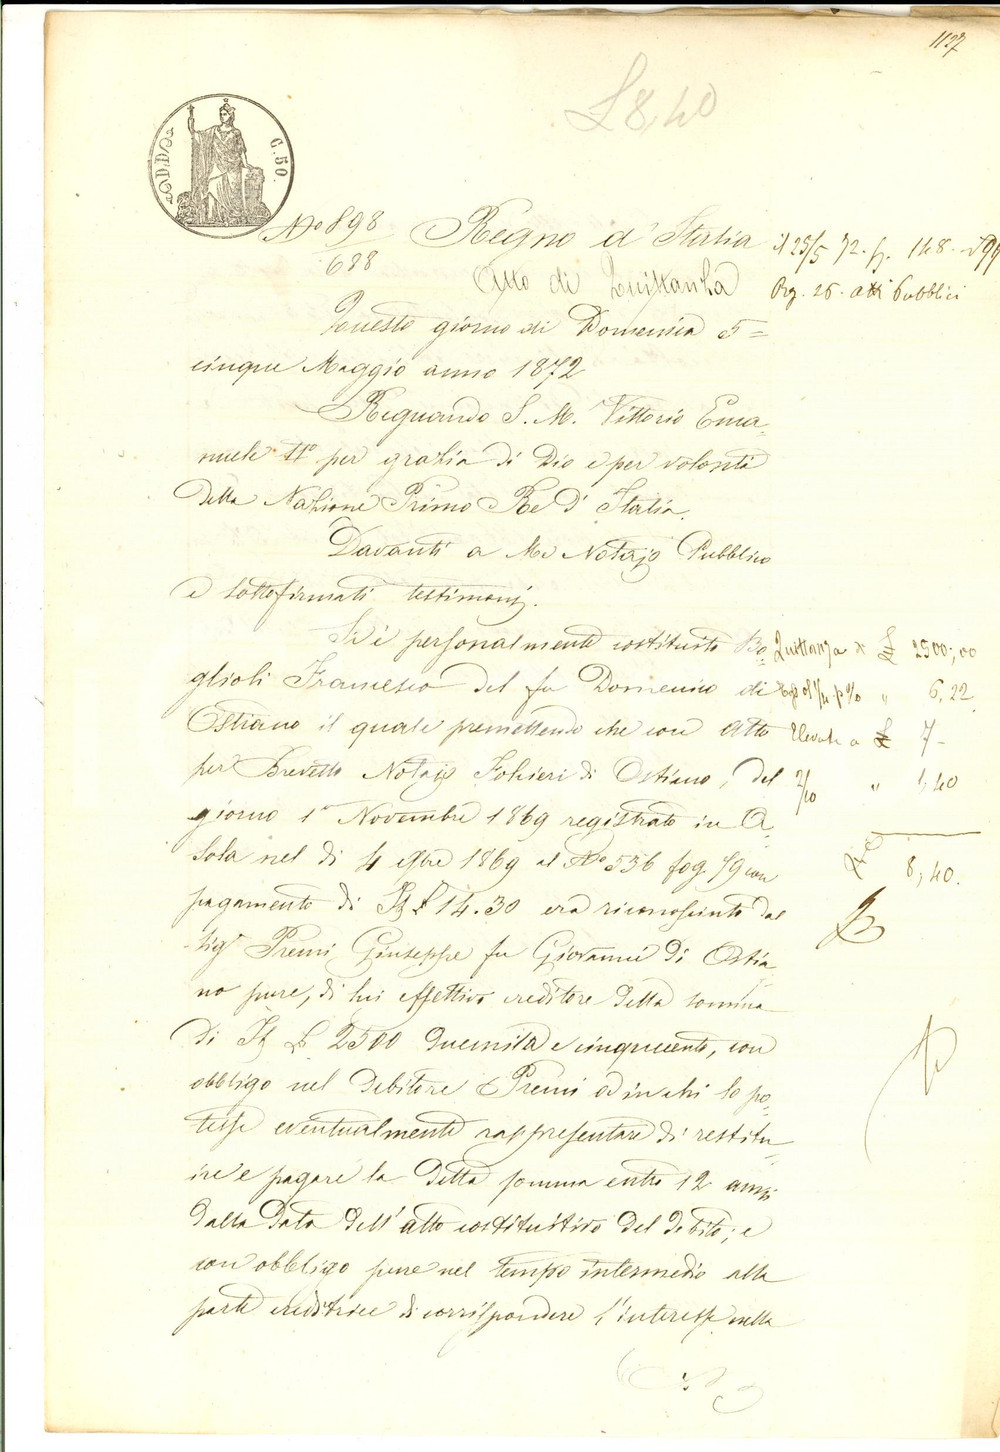 1127
£ 8,40
D.D.
C. 50.
No 898
688
Regno d'Italia
Atto di Quittanza
il 25/5 72. f. 148.
Reg. 26. atti Pubblici
Questo giorno di Domenica 5=
cinque Maggio anno 1872
Regnando S. M. Vittorio Ema-
nuele II° per grazia di Dio e per volontà
della Nazione Primo Re d'Italia.
Davanti a Me Notajo Pubblico
e sottofirmati testimonj.
Si è personalmente costituito Bo-
glioli Francesco del fu Domenico di
Ostiano il quale premettendo che con Atto
per Brevetto Notajo Solzieri di Ostiano, del
giorno 1° Novembre 1869 registrato in A-
sola nel dì 4 9bre 1869 al No 536 fog 79 con
pagamento di It £ 14.30 era riconosciuto dal
Sigr Premi Giuseppe fu Giovanni di Ostia-
no pure, di lui effettivo creditore della somma
di It £ 2500 duemila e cinquecento, con
obbligo nel debitore Premi od in chi lo po-
tesse eventualmente rappresentare di restitu-
ire e pagare la detta somma entro 12 anni
dalla data dell'atto costitutivo del debito; e
con obbligo pure nel tempo intermedio alla
parte creditrice di corrispondere l'interesse nella
Quittanza £ 2500,00
" 6,22
Elevate a £ 7-
2/10 " 1,40
8,40.